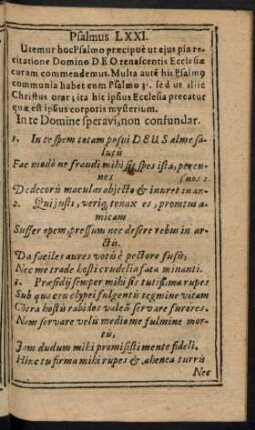 Psalmus LXXI.
Utemur hoc Psalmo præcipuè ut ejus pia re-
citatione Domino DEO renascentis Ecclesiæ
curam commendemus. Multa autē hic Psalmꝰ
communia habet cum Psalmo 31. sed ut illic
Christus orat; ita hic ipsus Ecclesia precatur
quæ est ipsus corporis mysterium.
In te Domine speravi, non confundar.
1. In te spem totam posui DEUS alme sa-
lutis
Fac modò ne fraudi mihi sit spes ista, peren-
(nos:
Dedecoris maculas objecto & inuret in
2. Qui justꝰ, verꝰ, tenax es, promtus
amicam
Suffer opem, pressum nec desere rebus in ar-
ctis.
Da faciles aures votis è pectore fusis,
Nec me trade hosti crudelia fata minanti.
3. Præsidij semper mihi sis tutissima rupes
Sub qua ceu clypei fulgentis tegmine vitam
Cōtra hostis rabidos valeā servare furores.
Nam servare velis medio me fulmine mor-
tis,
Jam dudum mihi promisisti mente fideli.
Hinc tu firma mihi rupes & ahenea turris
Nec